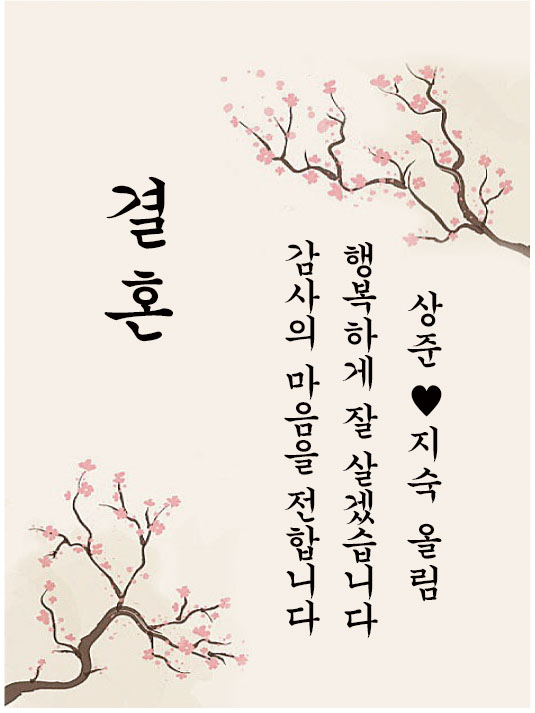 결혼
감사의 마음을 전합니다
행복하게 잘 살겠습니다
상준♥지숙 올림